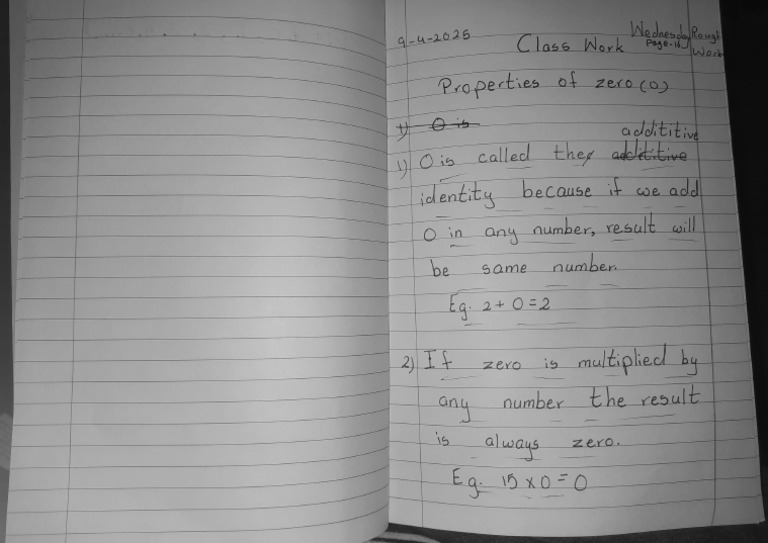 9-4-2025
Wednesday
Page-16
Rough Work
Class Work
Properties of zero (0)
1) 0 is
addititive
1) 0 is called the addititive
identity because if we add
0 in any number, result will
be same number.
Eg. 2 + 0 = 2
2) If zero is multiplied by
any number the result
is always zero.
Eg. 15 × 0 = 0